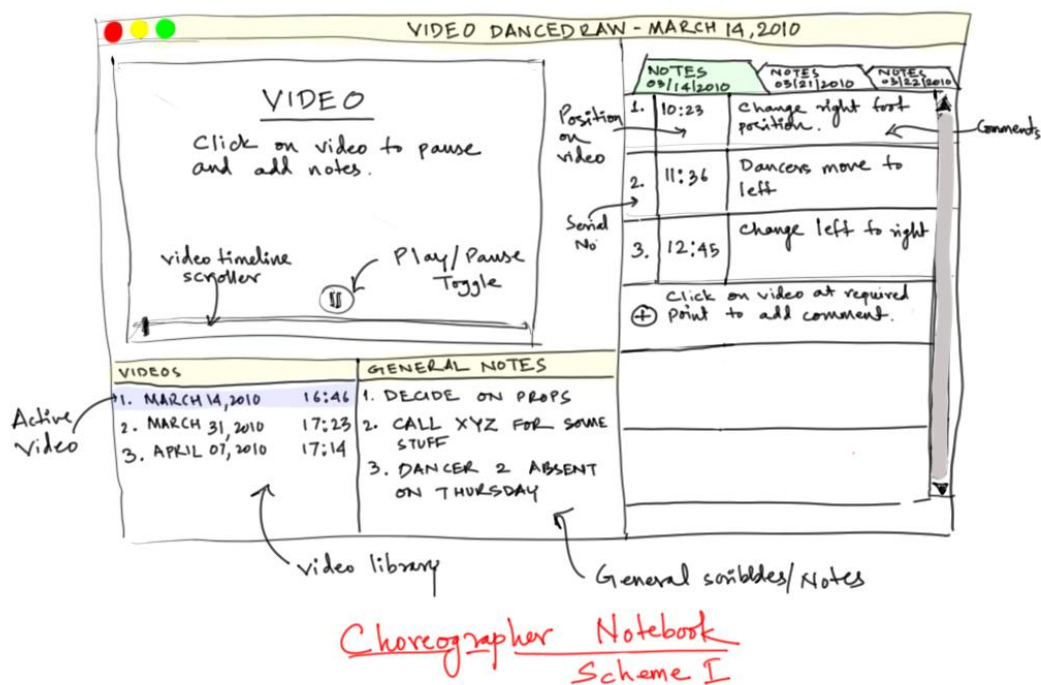 VIDEO DANCEDRAW - MARCH 14, 2010
VIDEO
Click on video to pause
and add notes.
video timeline
scroller
Play/Pause
Toggle
NOTES
03/14/2010
NOTES
03/21/2010
NOTES
03/22/2010
Position
on
video
Serial
No
Comments
1. 10:23 Change right foot
position.
2. 11:36 Dancers move to
left
3. 12:45 Change left to right
Click on video at required
point to add comment.
VIDEOS
1. MARCH 14, 2010 16:46
2. MARCH 31, 2010 17:23
3. APRIL 07, 2010 17:14
Active
Video
GENERAL NOTES
1. DECIDE ON PROPS
2. CALL XYZ FOR SOME
STUFF
3. DANCER 2 ABSENT
ON THURSDAY
video library
General scribbles/Notes
Choreographer Notebook
Scheme I